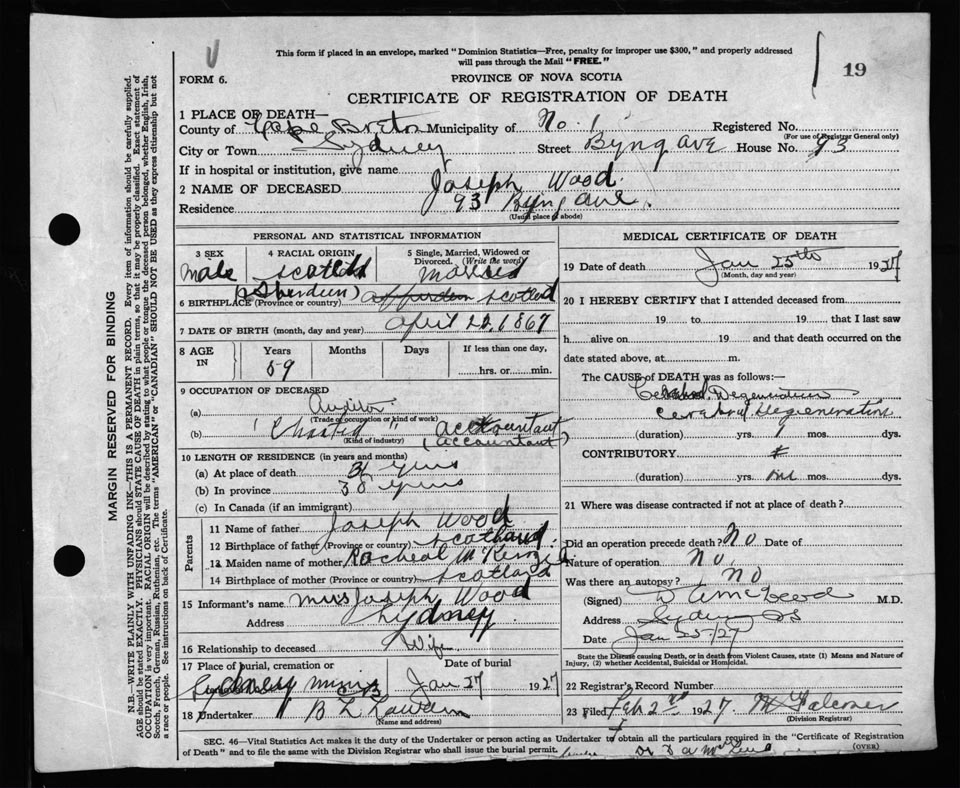 This form if placed in an envelope, marked "Dominion Statistics—Free, penalty for improper use $300," and properly addressed
will pass through the Mail "FREE."
19
FORM 6.
PROVINCE OF NOVA SCOTIA
CERTIFICATE OF REGISTRATION OF DEATH
1 PLACE OF DEATH—
County of Cape Breton Municipality of No. 1 Registered No.
(For use of Registrar General only)
City or Town Sydney Street Byng Ave House No. 93
If in hospital or institution, give name
2 NAME OF DECEASED Joseph Wood.
Residence 93 Byng Ave.
(Usual place of abode)
PERSONAL AND STATISTICAL INFORMATION
3 SEX
4 RACIAL ORIGIN
5 Single, Married, Widowed or Divorced. (Write the word)
Male
Married
(Aberdeen)
6 BIRTHPLACE (Province or country) Scotland
7 DATE OF BIRTH (month, day and year) April 22, 1867
8 AGE IN
Years
Months
Days
If less than one day,
59
hrs. or min.
9 OCCUPATION OF DECEASED
(a) Auditor
(Trade or occupation or kind of work)
(b) Accountant
(Kind of industry) (accountant)
10 LENGTH OF RESIDENCE (in years and months)
(a) At place of death years
(b) In province 38 years
(c) In Canada (if an immigrant)
Parents
11 Name of father Joseph Wood
12 Birthplace of father (Province or country) Scotland.
13 Maiden name of mother Racheal McKenzie
14 Birthplace of mother (Province or country) Scotland
15 Informant's name Mrs Joseph Wood
Address Sydney
16 Relationship to deceased Wife
17 Place of burial, cremation or
Date of burial
Sydney Mines C B Jan 27 1927
18 Undertaker B L
(Name and address)
MEDICAL CERTIFICATE OF DEATH
19 Date of death Jan 25th 1927
(Month, day and year)
20 I HEREBY CERTIFY that I attended deceased from
19 to 19 that I last saw
h alive on 19 and that death occurred on the
date stated above, at m.
The CAUSE of DEATH was as follows:—
Degeneration
Cerebral Degeneration
(duration) yrs. mos. ds.
CONTRIBUTORY
(duration) yrs. mos. dys.
21 Where was disease contracted if not at place of death?
Did an operation precede death? No Date of
Nature of operation No.
Was there an autopsy? No
(Signed) M.D.
Address Sydney NS
Date Jan 25-/27
State the Disease causing Death, or in death from Violent Causes, state (1) Means and Nature of
Injury, (2) whether Accidental, Suicidal or Homicidal.
22 Registrar's Record Number
23 Filed Feb 2nd 1927
(Division Registrar)
SEC. 46—Vital Statistics Act makes it the duty of the Undertaker or person acting as Undertaker to obtain all the particulars required in the "Certificate of Registration
of Death" and to file the same with the Division Registrar who shall issue the burial permit.
(OVER)
MARGIN RESERVED FOR BINDING
N.B.—WRITE PLAINLY WITH UNFADING INK—THIS IS A PERMANENT RECORD. Every item of information should be carefully supplied.
AGE should be stated EXACTLY. PHYSICIANS should STATE CAUSE OF DEATH in plain terms, so that it may be properly classified. Exact statement of
OCCUPATION is very important. RACIAL ORIGIN will be described by stating to what people or tongue the deceased person belonged, whether English, Irish,
Scotch, French, German, Russian, Ruthenian, etc. The terms "AMERICAN" or "CANADIAN" SHOULD NOT BE USED as they express citizenship but not
a race or people. See instructions on back of Certificate.